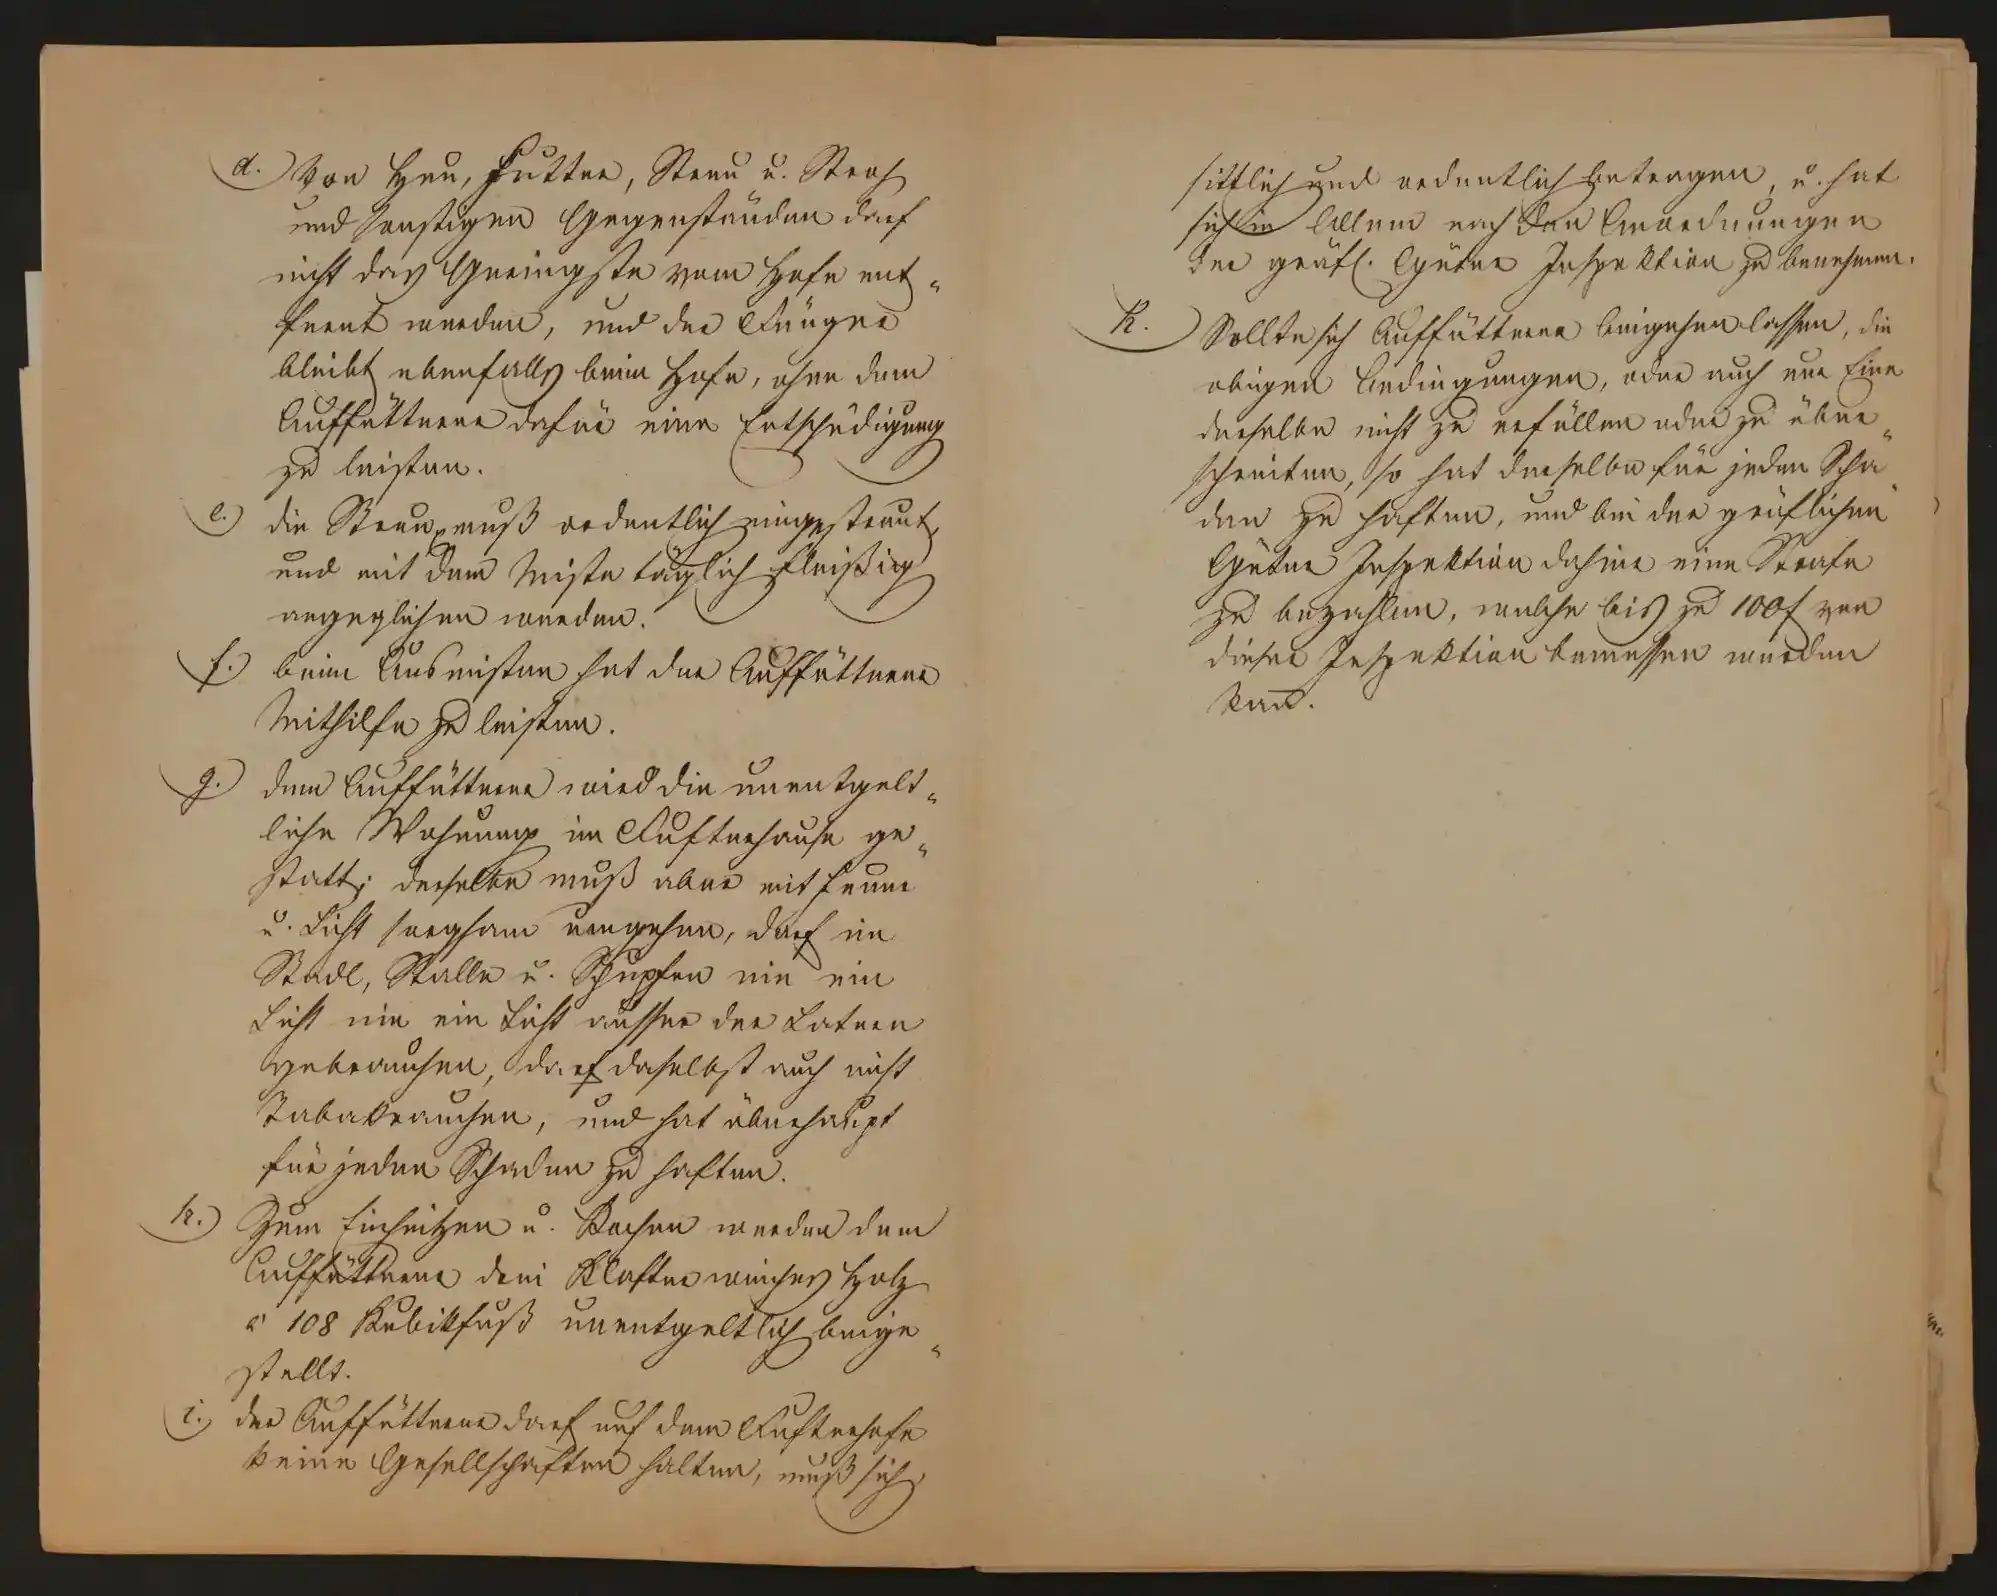 d. Von Heu, Futter, Streu u. Stroh
und sonstigen Gegenständen darf
nicht das Geringste vom Hofe ent„
fernt werden, und der Dünger
bleibt ebenfalls beim Hofe, ohne dem
Auffütterer dafür eine Entschädigung
zu leisten.
e. die Streu muß ordentlich eingestreut,
und mit dem Miste täglich fleißig
ausgeglichen werden.
f. beim Ausmisten hat der Auffütterer
Mithilfe zu leisten.
g. dem Auffütterer wird die unentgelt„
liche Wohnung im hause ge„
statt; derselbe muß aber mit Feuer
u. Licht sorgsam umgehen, darf im
Stadl, Stalle u. Schupfen nie ein
Licht nie ein Licht ausser der Latern
gebrauchen, darf daselbst auch nicht
Tabakrauchen, und hat überhaupt
für jeden Schaden zu haften.
h. Zum Einheitzen u. Kochen werden dem
Auffütterer drei Klafter weiches Holz
a 108 Kubikfuß unentgeltlich beige„
stellt.
i. der Auffütterer darf auf dem hofe
keine Gesellschaften halten, muß sich
sittlich und ordentlich betragen, u. hat
sich in Allem nach den Anordnungen
der gräfl. Güter Inspektion zu benehmen.
k. Sollte sich Auffütterer beigehen lassen, die
obigen Bedingungen, oder auch nur Eine
derselbe nicht zu erfüllen oder zu über„
schreiten, so hat derselbe für jeden Scha„
den zu haften, und bei der gräflichen
Güter Inspektion daher eine Strafe
zu bezahlen, welche bis zu 100f von
dieser Inspektion bemessen werden
kan̄.